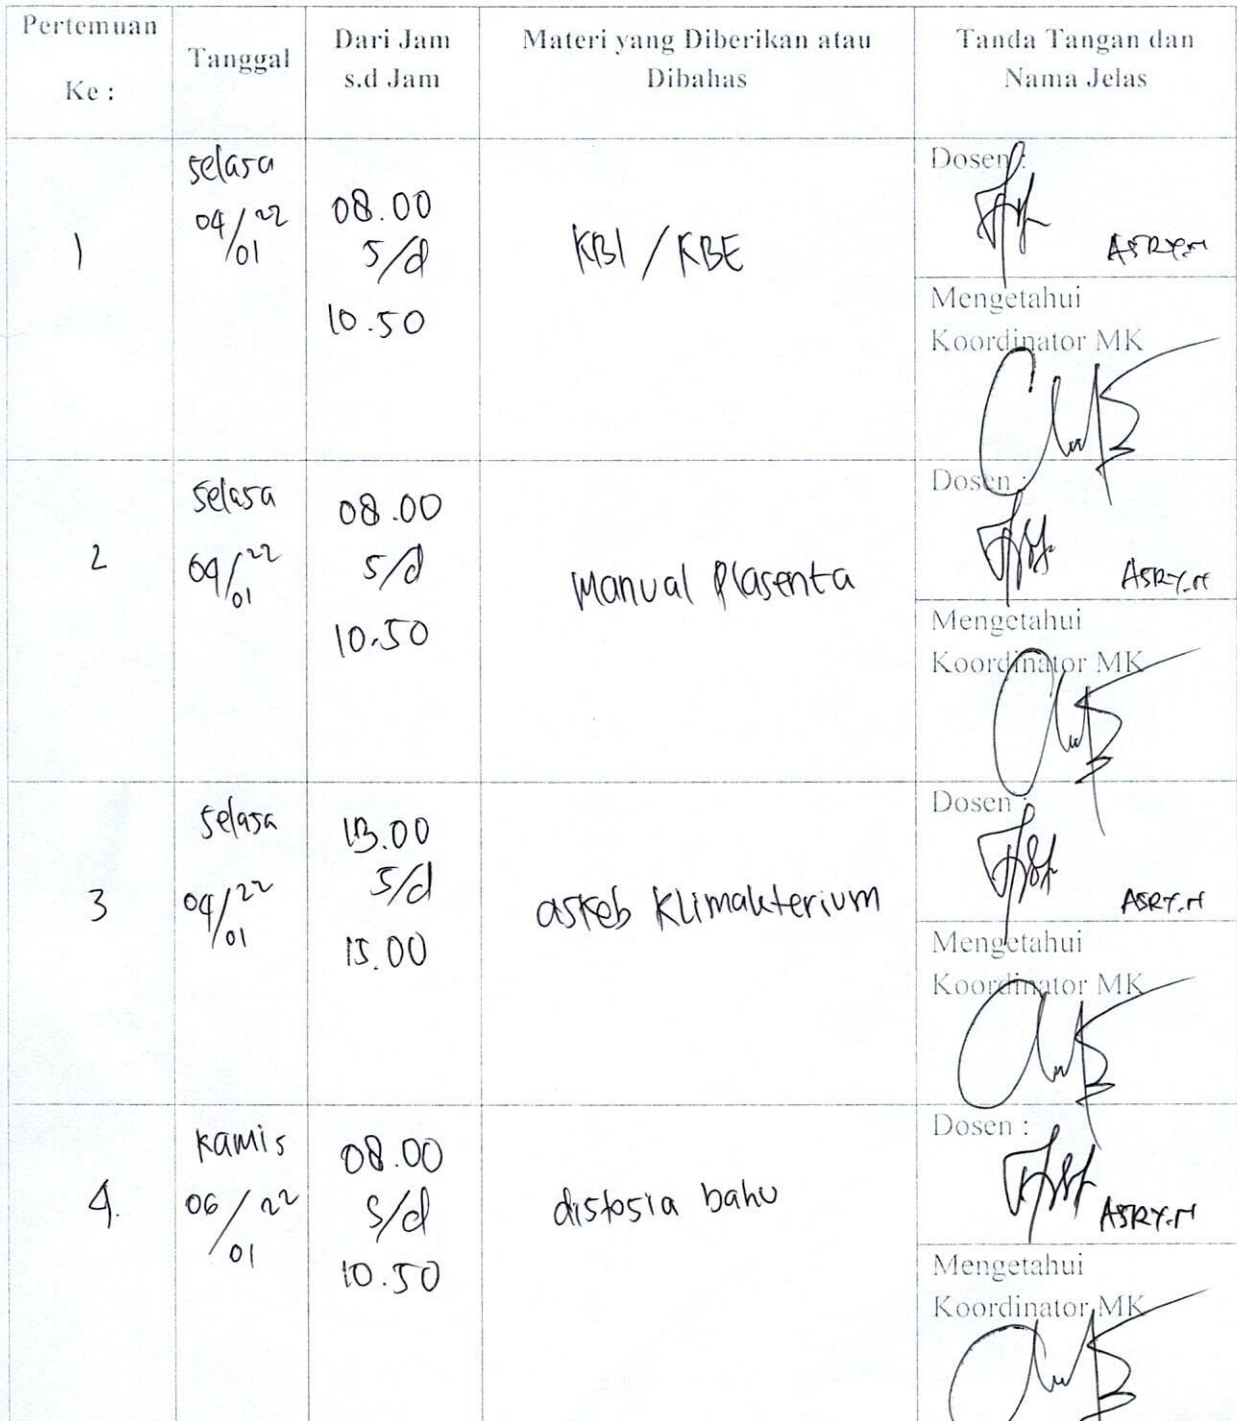 Pertemuan
Ke :
Tanggal
Dari Jam
s.d Jam
Materi yang Diberikan atau
Dibahas
Tanda Tangan dan
Nama Jelas
1
selasa
04/22
/01
08.00
s/d
10.50
KBI / KBE
Dosen :
ASRY.N
Mengetahui
Koordinator MK
2
selasa
04/22
/01
08.00
s/d
10.50
Manual Plasenta
Dosen :
ASRY.N
Mengetahui
Koordinator MK
3
selasa
04/22
/01
13.00
s/d
15.00
askeb Klimakterium
Dosen :
ASRY.N
Mengetahui
Koordinator MK
4.
kamis
06/22
/01
08.00
s/d
10.50
distosia bahu
Dosen :
ASRY.N
Mengetahui
Koordinator MK